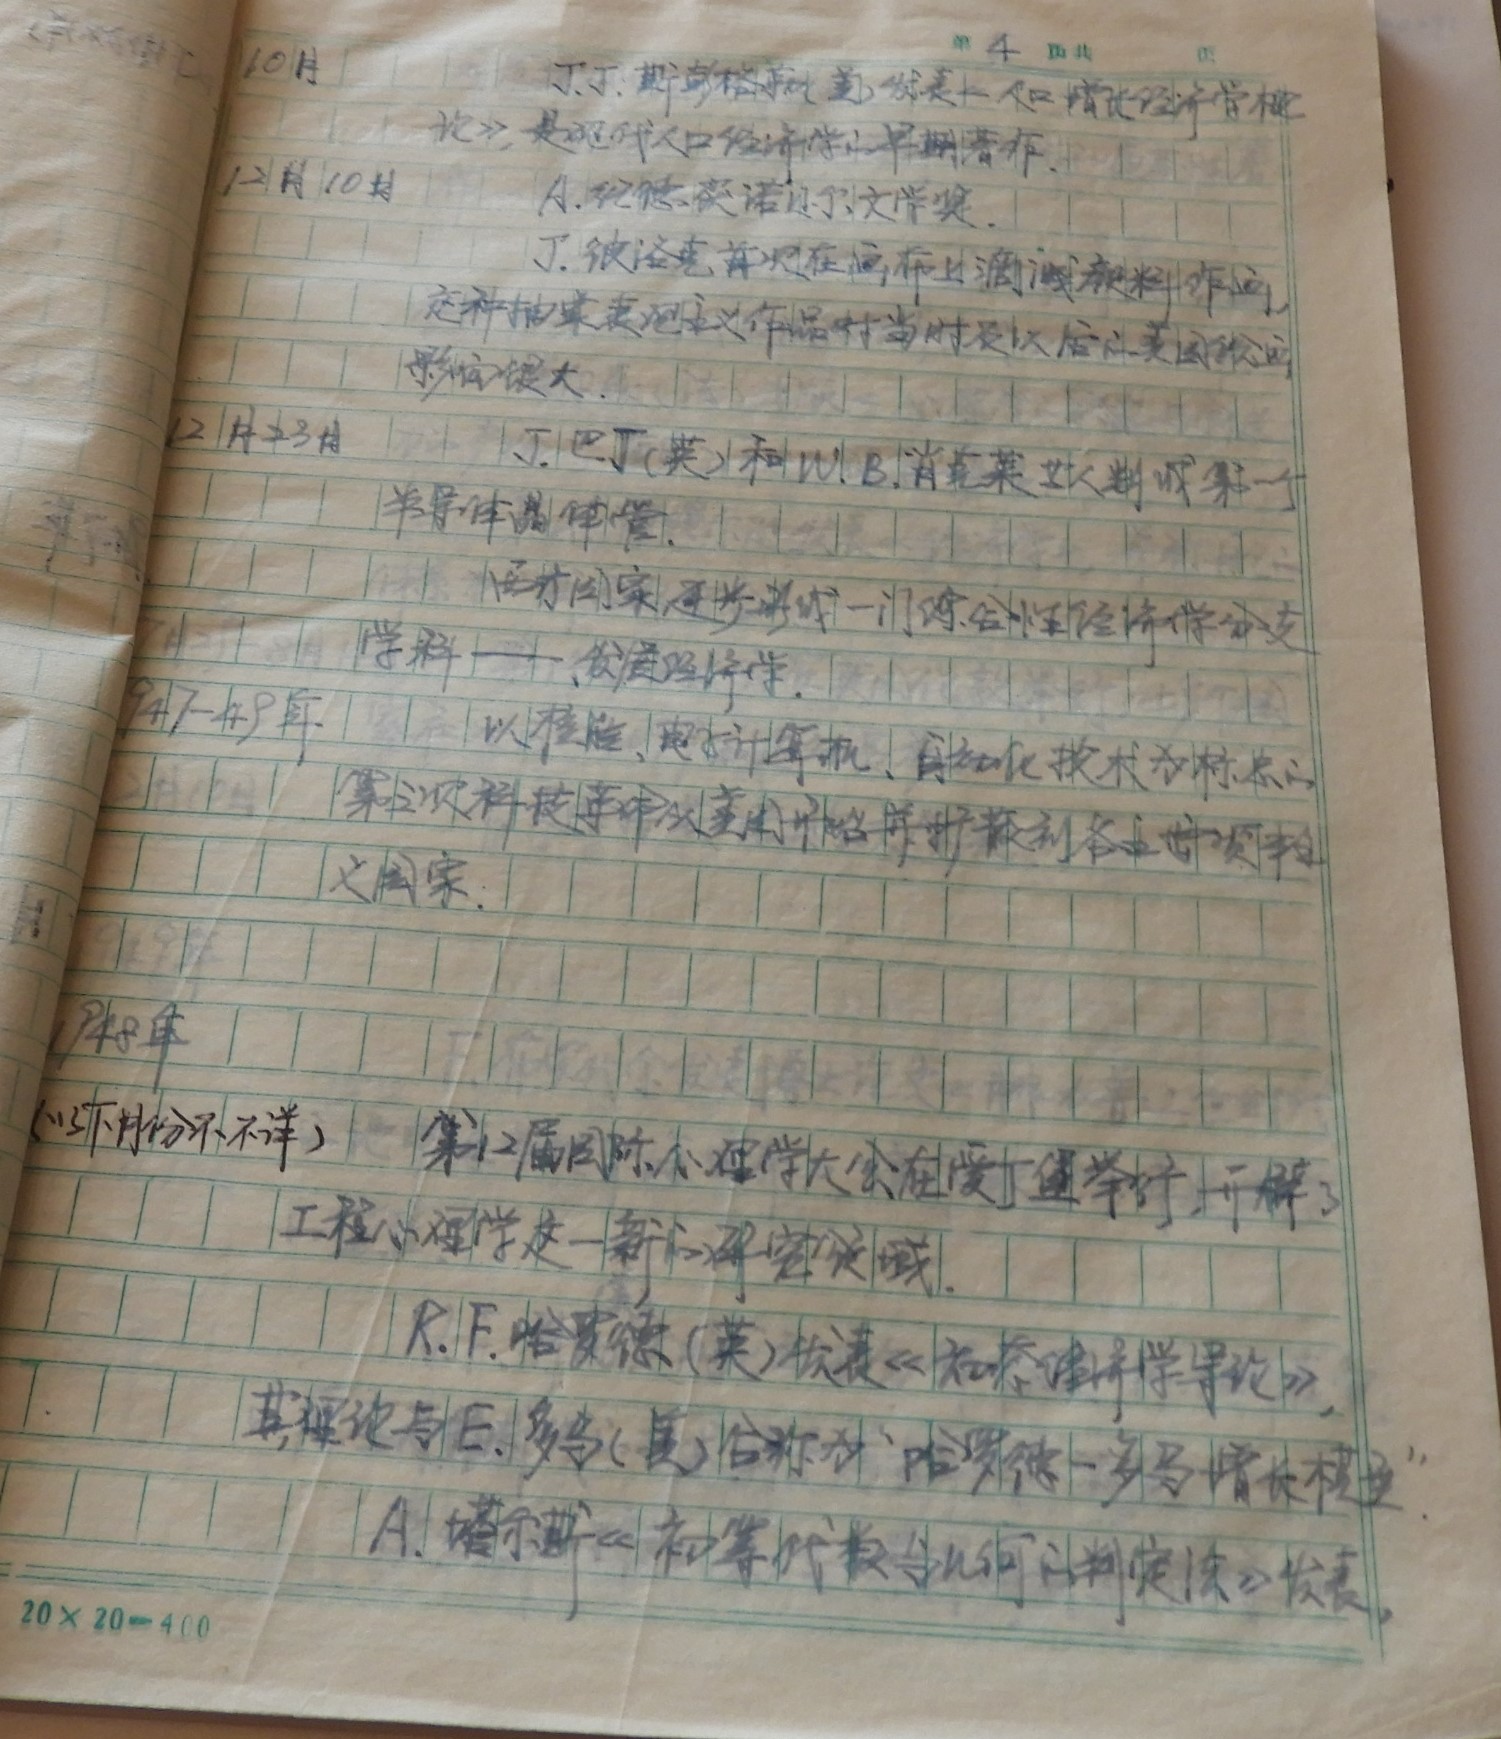 第 4 页共 页
10月 J.J.斯彭格勒(美)发表《人口增长经济学概
论》,是现代人口经济学的早期著作.
12月10日 A.纪德获诺贝尔文学奖.
J.彼洛克首次在画布上滴溅颜料作画,
这种抽象表现主义作品对当时及以后的美国绘画
影响很大.
12月23日 J.巴丁(英)和W.B.肖克莱等人制成第一个
半导体晶体管.
西方国家逐步形成一门综合性经济学分支
学科——发展经济学.
947-49年 以核能、电子计算机、自动化技术为标志的
第三次科技革命从美国开始并扩散到各主要资本主
义国家.
1948年
(以下月份不详) 第12届国际心理学大会在爱丁堡举行,开辟了
工程心理学这一新的研究领域.
R.F.哈罗德(英)发表《动态经济学导论》,
其理论与E.多马(美)合称为“哈罗德-多马增长模型”.
A.塔尔斯《初等代数与几何的判定法》发表,
20×20=400